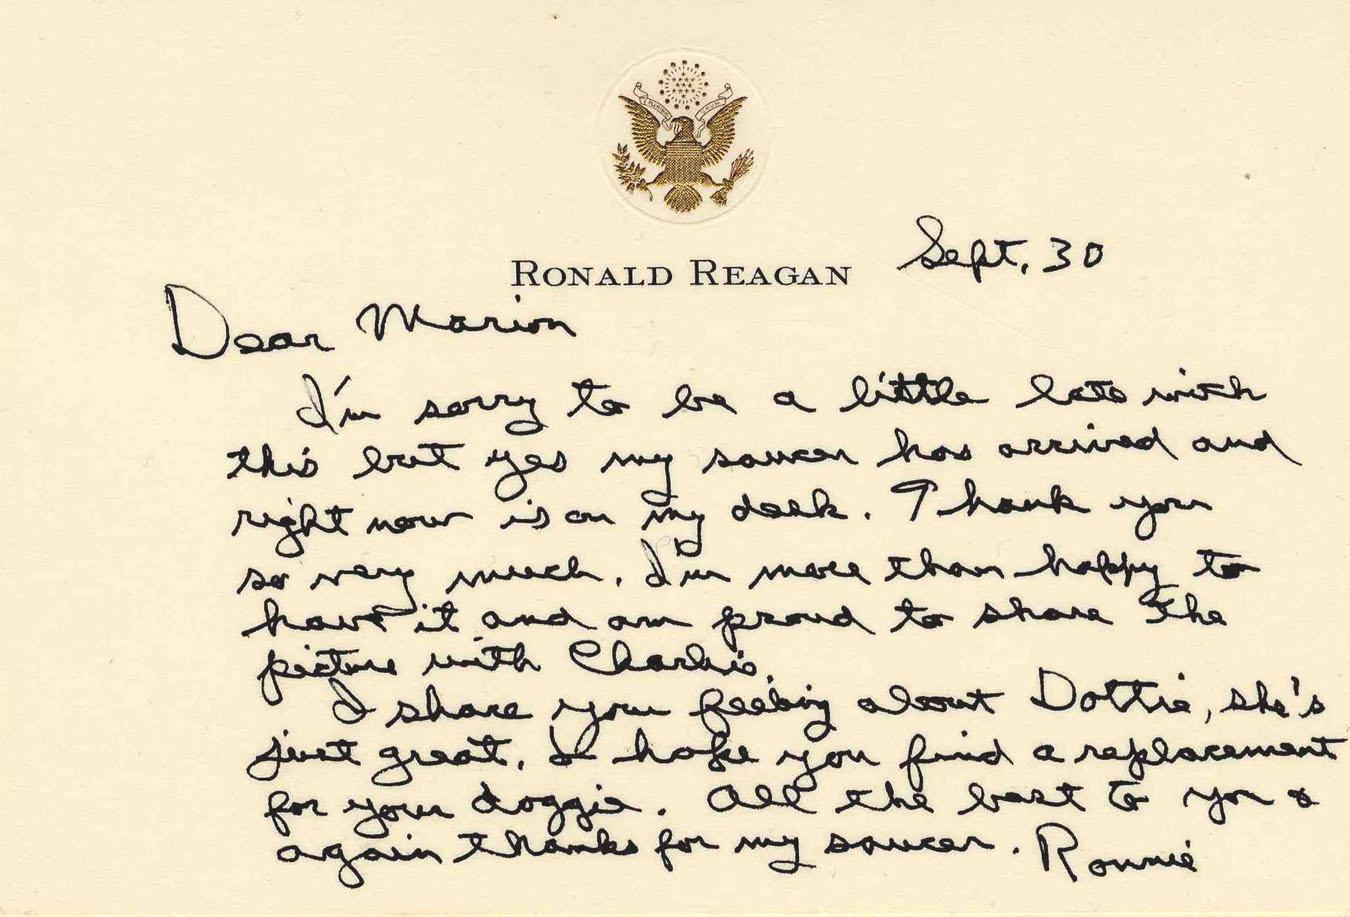 RONALD REAGAN
Sept. 30
Dear Marion
I'm sorry to be a little late with
this but yes my saucer has arrived and
right now is on my desk. Thank you
so very much. I'm more than happy to
have it and am proud to share the
picture with Charlie.
I share your feeling about Dottie, she's
just great. I hope you find a replacement
for your doggie. All the best to you &
again thanks for my saucer. Ronnie